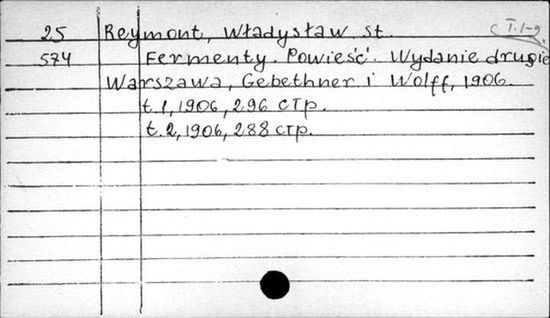 25 Reymont, Władysław st. T. 1-2.
574 Fermenty. Powieść. Wydanie drugie
Warszawa, Gebethner i Wolff, 1906.
t. 1, 1906, 296 стр.
t. 2, 1906, 288 стр.